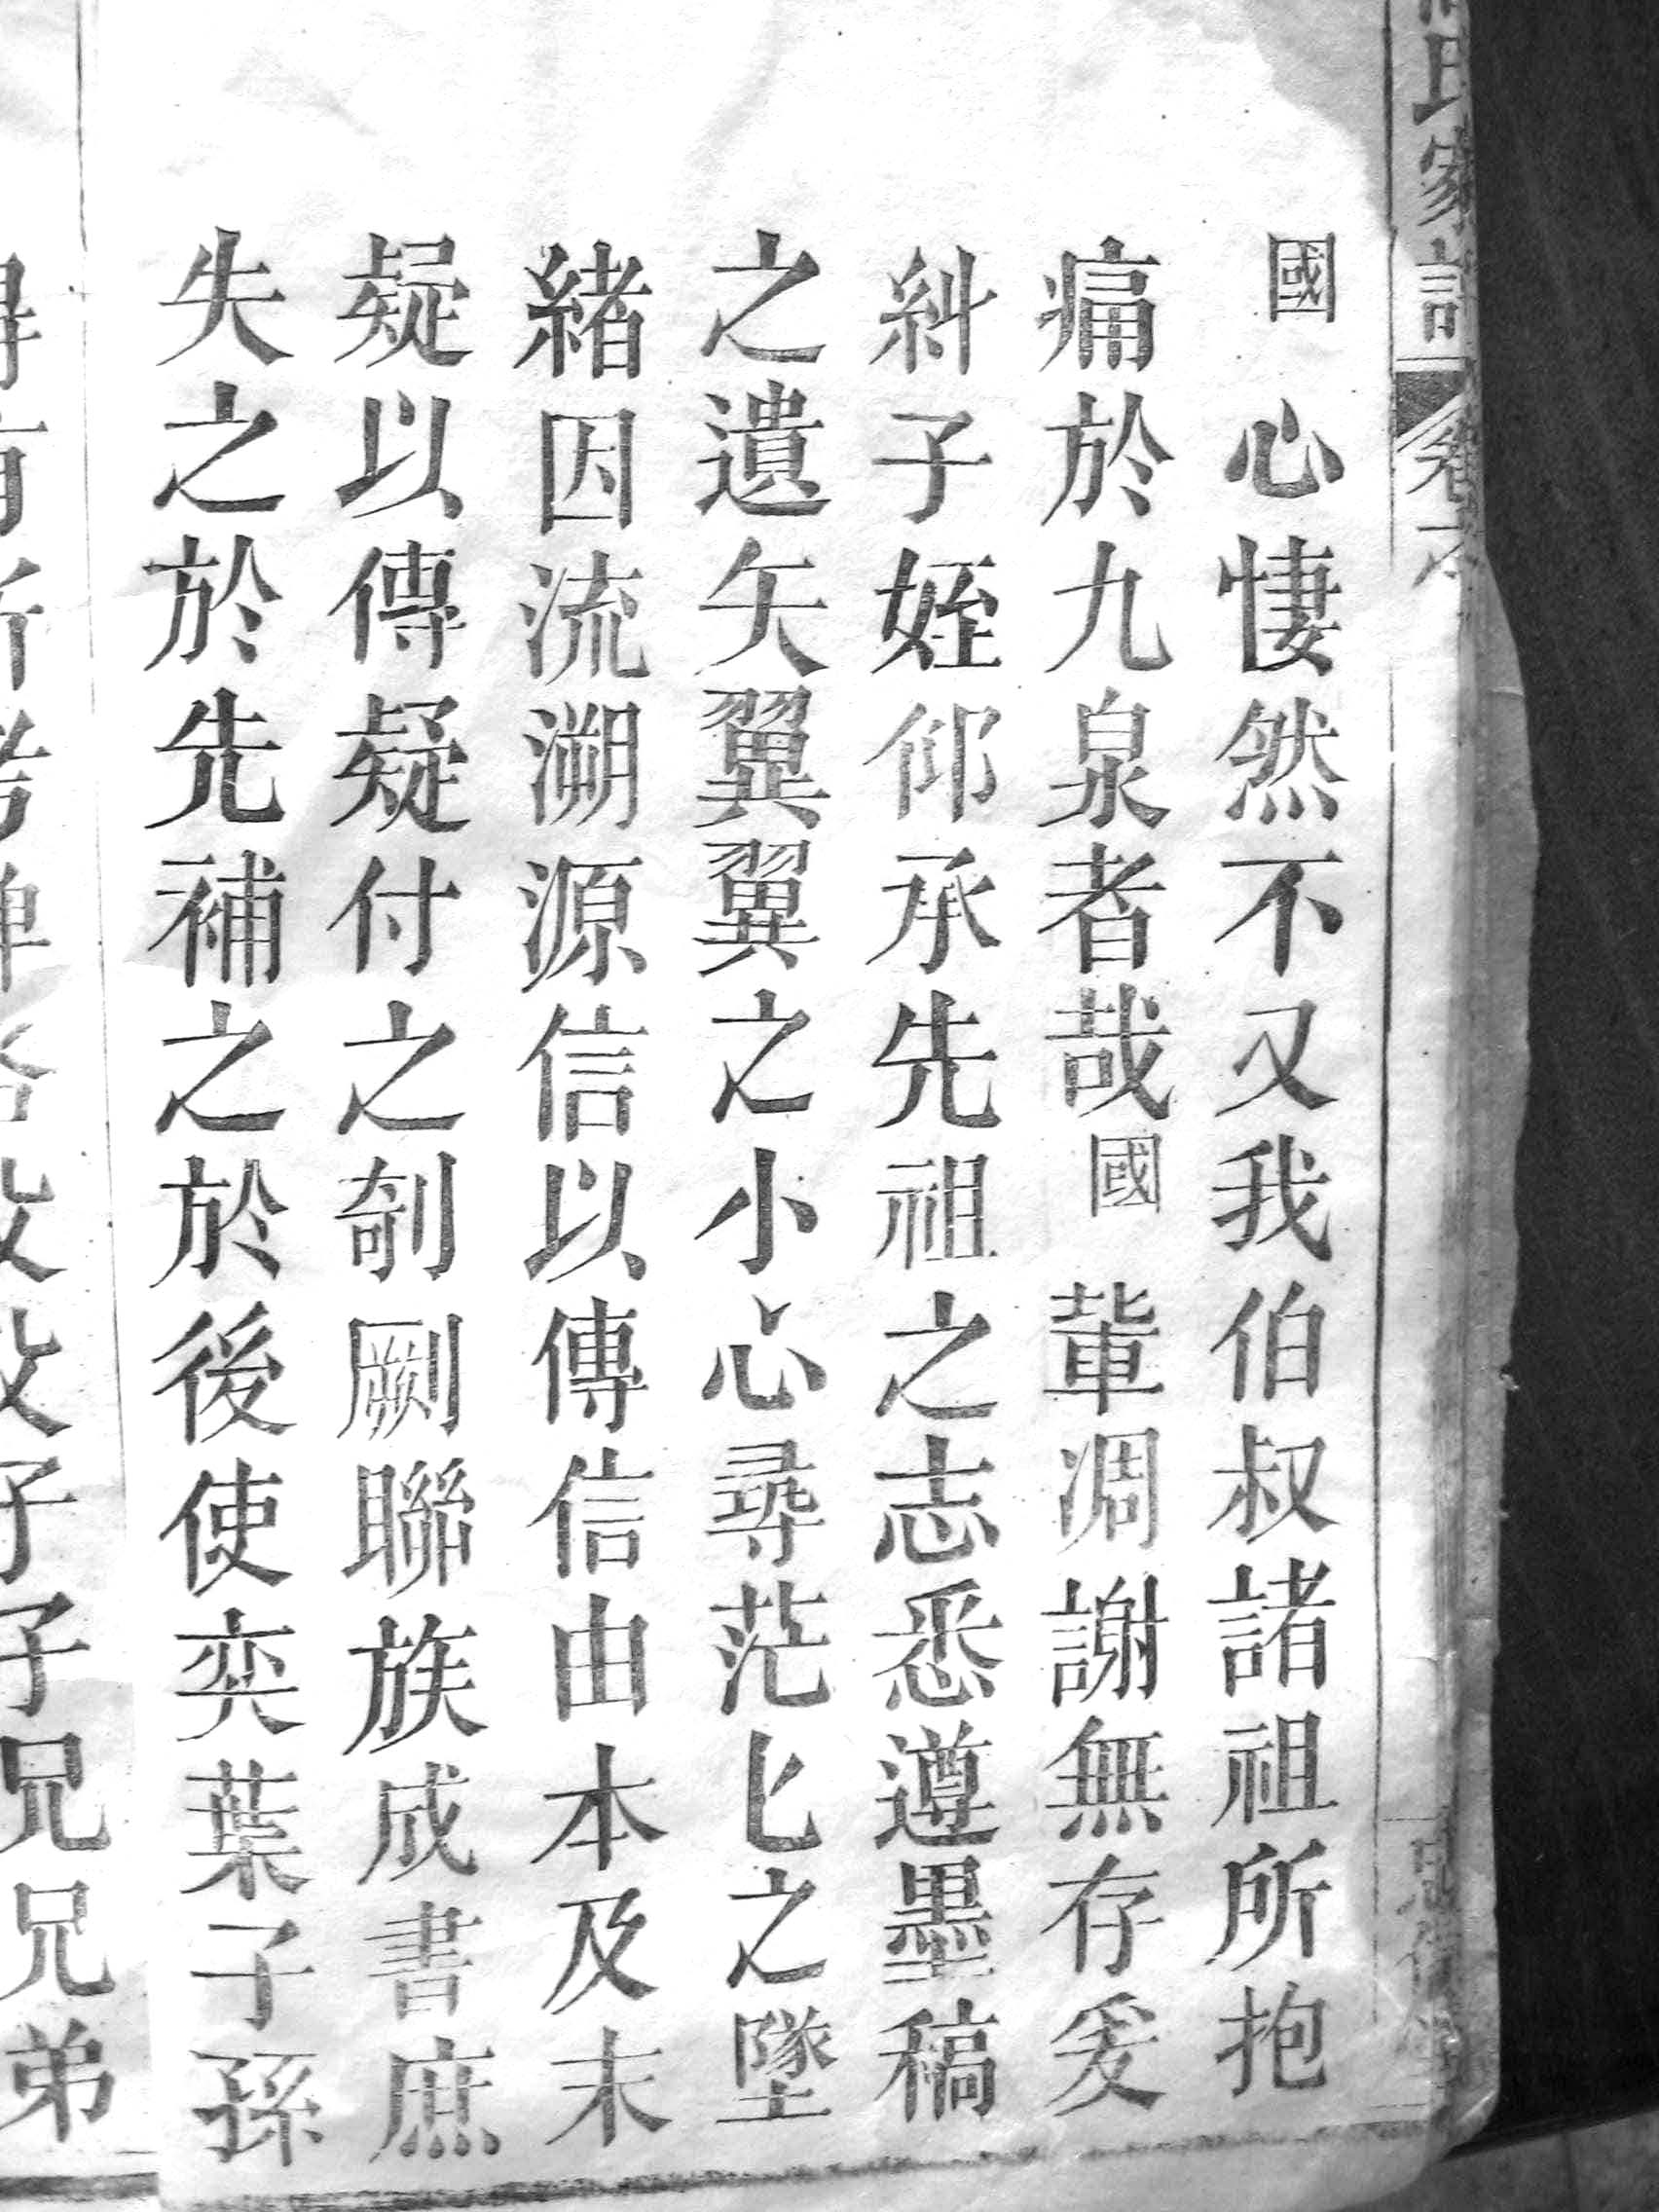 氏家譜
國心悽然不又我伯叔諸祖所抱
痛於九泉者哉國輩凋謝無存爰
糾子姪仰承先祖之志悉遵墨稿
之遺矢翼翼之小心尋茫匕之墜
緒因流溯源信以傳信由本及末
疑以傳疑付之剞劂聯族成書庶
失之於先補之於後使奕葉子孫
兄兄弟